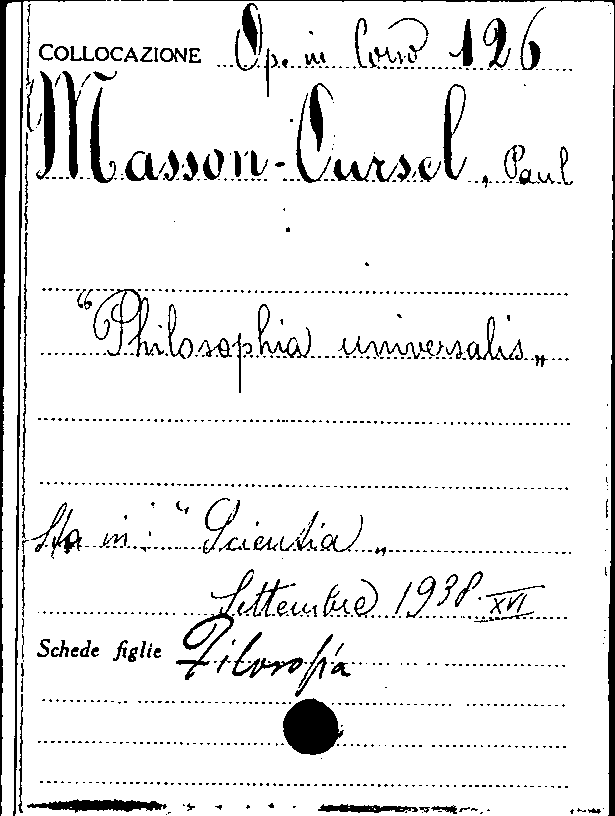 COLLOCAZIONE Op. in Corso 126
Masson-Oursel, Paul
"Philosophia universalis„
Sta in: "Scientia„
Settembre 1938·XVI
Schede figlie Filosofia